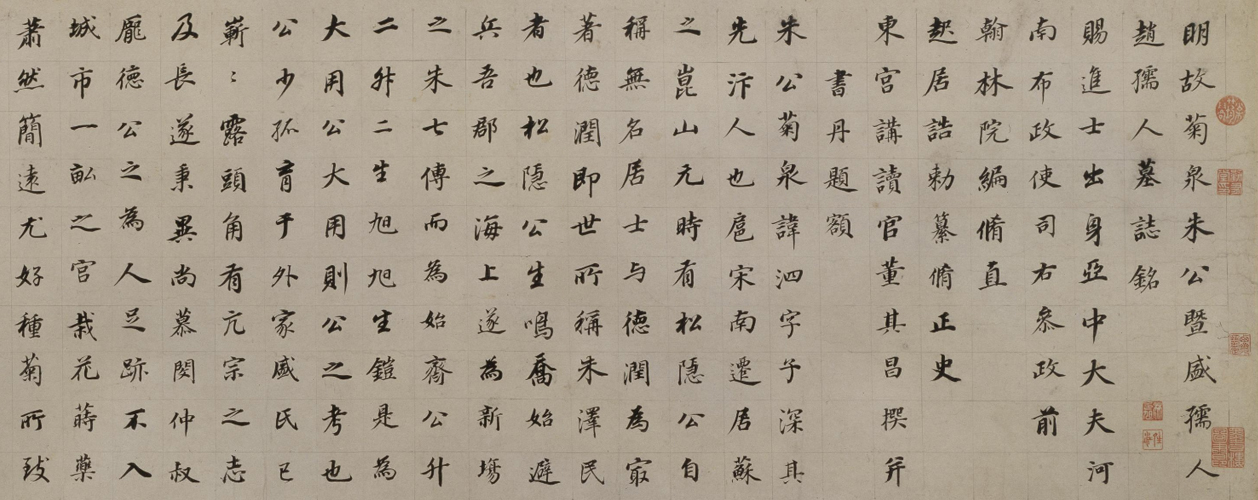 明故菊泉朱公暨盛孺人
趙孺人墓誌銘
賜進士出身亞中大夫河
南布政使司右叅政前
翰林院編脩直
起居誥勅纂脩正史
東宮講讀官董其昌撰并
書丹題額
朱公菊泉諱泗字子深其
先汴人也扈宋南遷居蘇
之崑山元時有松隱公自
稱無名居士与德潤為㝡
著德潤即世所稱朱澤民
者也松隱公生鳴喬始避
兵吾郡之海上遂為新塲
之朱七傳而為始齋公升
二升二生旭旭生鎧是為
大用公大用則公之考也
公少孤育于外家盛氏已
嶄〻露頭角有亢宗之志
及長遂秉異尚慕閔仲叔
龐德公之為人足跡不入
城市一畝之宮栽花蒔藥
蕭然簡遠尤好種菊所致